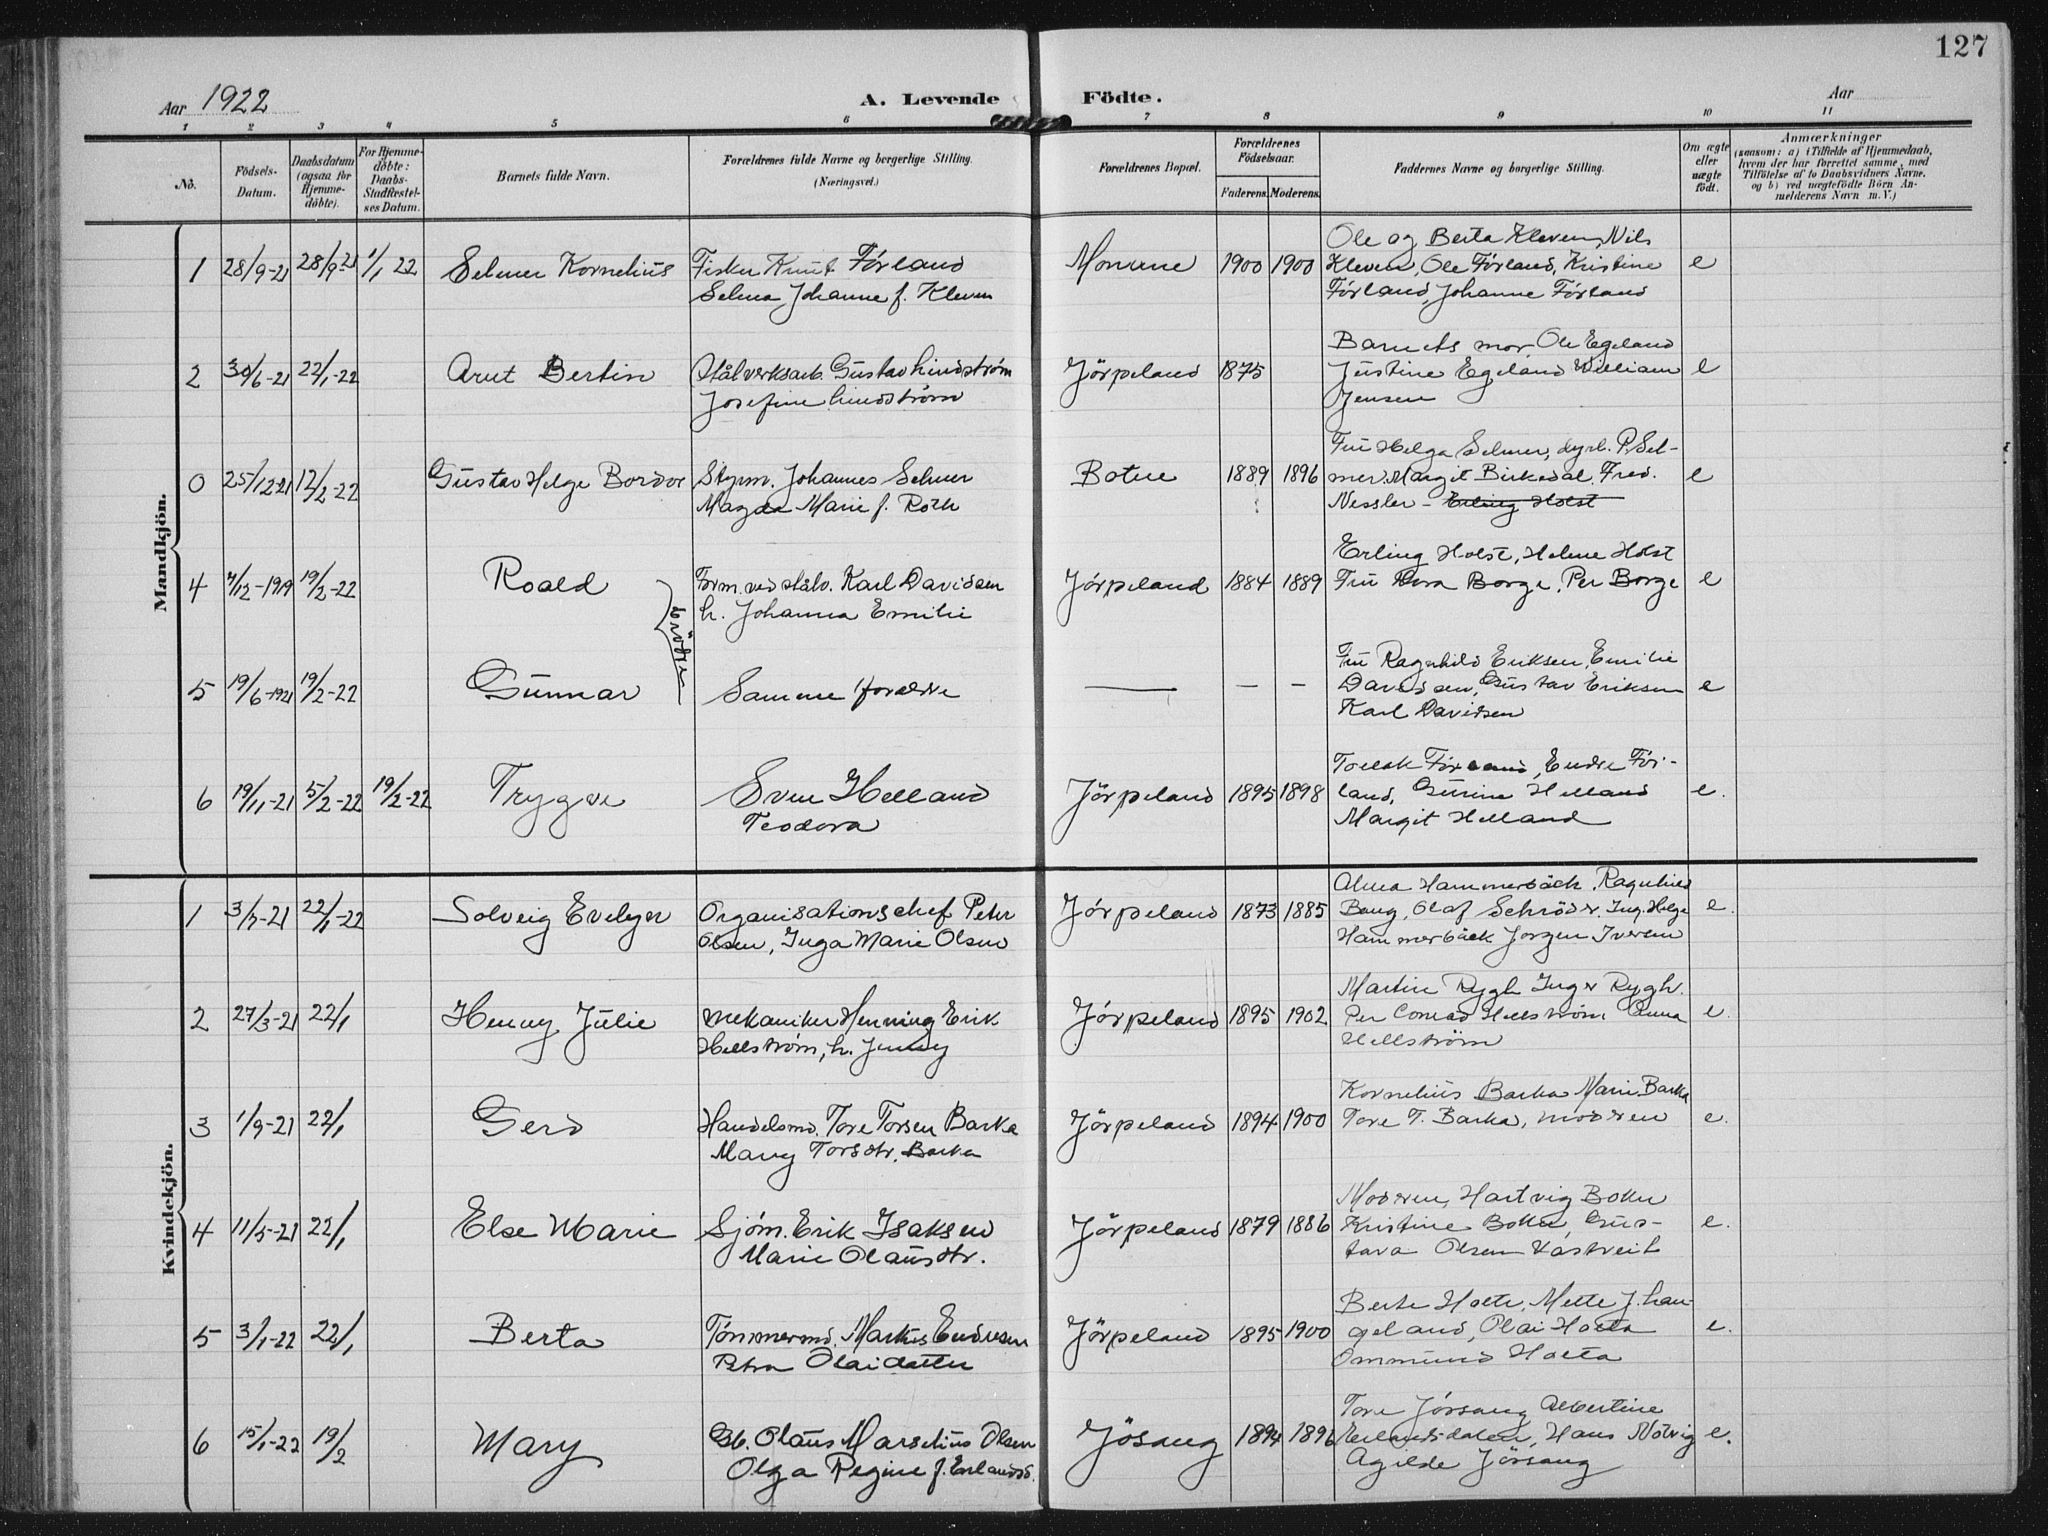 127
Aar 1922
A. Levende Födte.
Aar
1 2 3 4 5 6 7 8 9 10 11
No.
Födsels-
Datum.
Daabsdatum
(ogsaa for
Hjemme-
döbte).
For Hjemme-
döbte:
Daabs-
Stadfæstel-
ses Datum.
Barnets fulde Navn.
Forældrenes fulde Navne og borgerlige Stilling.
(Næringsvei.)
Forældrenes Bopæl.
Forældrenes
Födselsaar.
Faderens. Moderens.
Faddernes Navne og borgerlige Stilling.
Om ægte
eller
uægte
födt.
Anmærkninger
(saasom: a) i Tilfælde af Hjemmedaab,
hvem der har forrettet samme, med
Tilföielse af to Daabsvidners Navne.
og b) ved uægtefödte Börn An-
melderens Navn m. V.)
Mandkjön.
1 28/9-21 28/9-21 1/1 22 Selmer Kornelius Fisker Knut Førland
Selma Johanne f. Kleven
Monene 1900 1900
Ole og Berta Kleven, Nils
Kleven, Ole Førland, Kristine
Førland, Johanne Førland
e
2 30/6-21 22/1-22 Arut Bertin Stålverksarb. Gustav Lindstrøm
Josefine Lindstrøm
Jørpeland 1875
Barnets mor, Ole Egeland
Justine Egeland William
Jensen
e
0 25/12-21 12/2-22 Gustav Helge Styrm. Johannes Selmer
Magda Marie f. Roth
Botne 1889 1896
Fru Helga Selmer, dyrl. P. Sel-
mer. Margit Birkedal, Fred.
Nessler - Erling Holst
e
4 7/12-1919 19/2-22 Roald Form. ved stålv. Karl Davidsen
h. Johanna Emilie
brødre
Jørpeland 1884 1889
Erling Holst, Helene Holst
Fru Dora Borge, Per Borge
e
5 19/6-1921 19/2-22 Gunnar Samme foreldre
— — —
Fru Ragnhild Eriksen, Emilie
Davidsen, Gustav Eriksen
Karl Davidsen
e
6 19/11-21 5/2-22 19/2-22 Trygve Sven Helland
Teodora
Jørpeland 1895 1898
Tollak Førland, Endre Før-
land, Gurine Helland
Margit Helland
e.
Kvindekjön.
1 3/7-21 22/1-22 Solveig Evelyn Organisationschef Peter
Olsen, Inga Marie Olsen
Jørpeland 1873 1885
Alma Hammerbäck, Ragnhild
Baug, Olaf Schrøder, Ing. Helge
Hammerbäck Jørgen Iversen
e.
2 27/3-21 22/1 Henny Julie Mekaniker Henning Erik
Hellstrøm, h. Jenny
Jørpeland 1895 1902
Martin Rygh Inger Rygh.
Per Conrad Hellstrøm Anna
Hellstrøm
e.
3 1/9-21 22/1 Gerd Handelsmd. Tore Torsen Barka
Mary Torsdtr. Barka
Jørpeland 1894 1900
Kornelius Barka Marie Barka
Tore T. Barka, moderen
e.
4 11/5-21 22/1 Else Marie Sjøm. Erik Isaksen
Marie Olausdtr.
Jørpeland 1879 1886
Moderen, Hartvig Bokn
Kristine Bokn, Gus-
tava Olsen Vastveit
e.
5 3/1-22 22/1 Berta Tømmermd. Markus Endresen
Petra Olaidatter
Jørpeland 1895 1900
Berte Holta, Mette J. hau-
geland, Olai Holta
Ommund Holta
e.
6 15/1-22 19/2 Mary Gb. Olaus Marselius Olsen
Olga Regine f. Erlandsd.
Jøsang 1894 1896
Tore Jørsang Albertine
Erlandsdalen, Hans Nølvig
Agilde Jørsang
e.